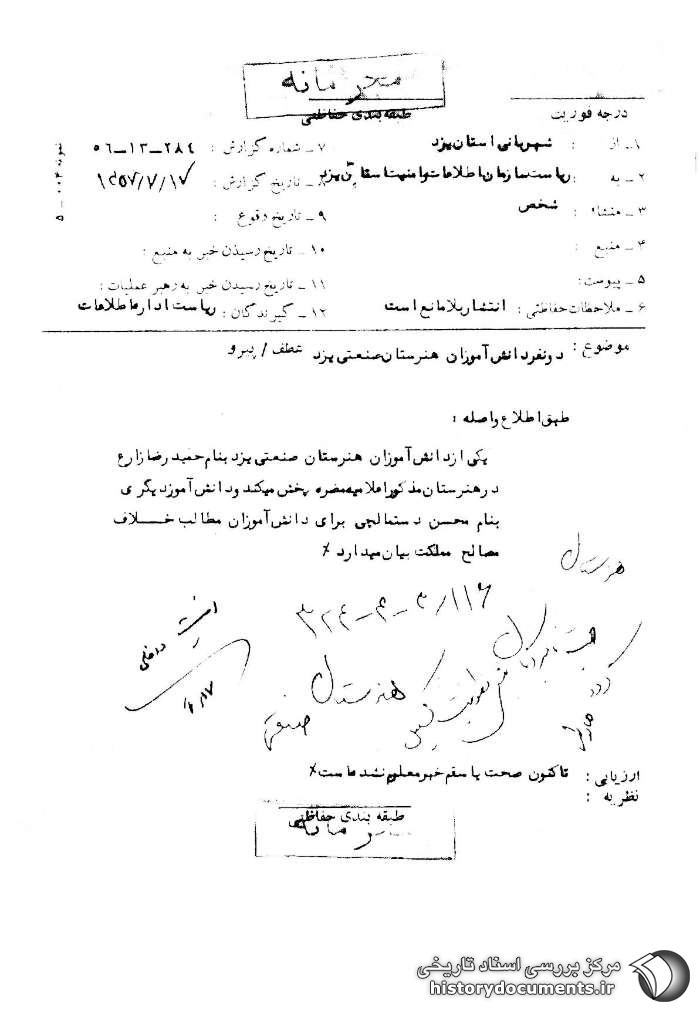 محرمانه
درجه فوریت
طبقه بندی حفاظتی
۱ـ از : شهربانی استان یزد
۲ـ به : ریاست سازمان اطلاعات و امنیت استان یزد
۳ـ منشاء : شخص
۴ـ منبع :
۵ـ پیوست:
۶ـ ملاحظات حفاظتی : انتشار بلامانع است
۷ـ شماره گزارش : ۲۸۴ـ۱۳ـ۵۶
۸ـ تاریخ گزارش : ۱۳۵۷/۷/۱۷
۹ـ تاریخ وقوع :
۱۰ـ تاریخ رسیدن خبر به منبع :
۱۱ـ تاریخ رسیدن خبر به رهبر عملیات :
۱۲ـ گیرندگان : ریاست اداره اطلاعات
موضوع : دو نفر دانش آموزان هنرستان صنعتی یزد عطف / پیرو
طبق اطلاع واصله :
یکی از دانش آموزان هنرستان صنعتی یزد بنام حمید رضا زارع
در هنرستان مذکور اعلامیه مضره پخش میکند و دانش آموز دیگری
بنام محسن دستمالچی برای دانش آموزان مطالب خلاف
مصالح مملکت بیان میدارد ×
هنرستان
۳۲۴ـ۴ـ۳/۱۱۶
امنیت داخلی
هنرستان
صنعتی
ارزیابی : تاکنون صحت یا سقم خبر معلوم نشده است ×
نظریه :
طبقه بندی حفاظتی
محرمانه
مرکز بررسی اسناد تاریخی
historydocuments.ir